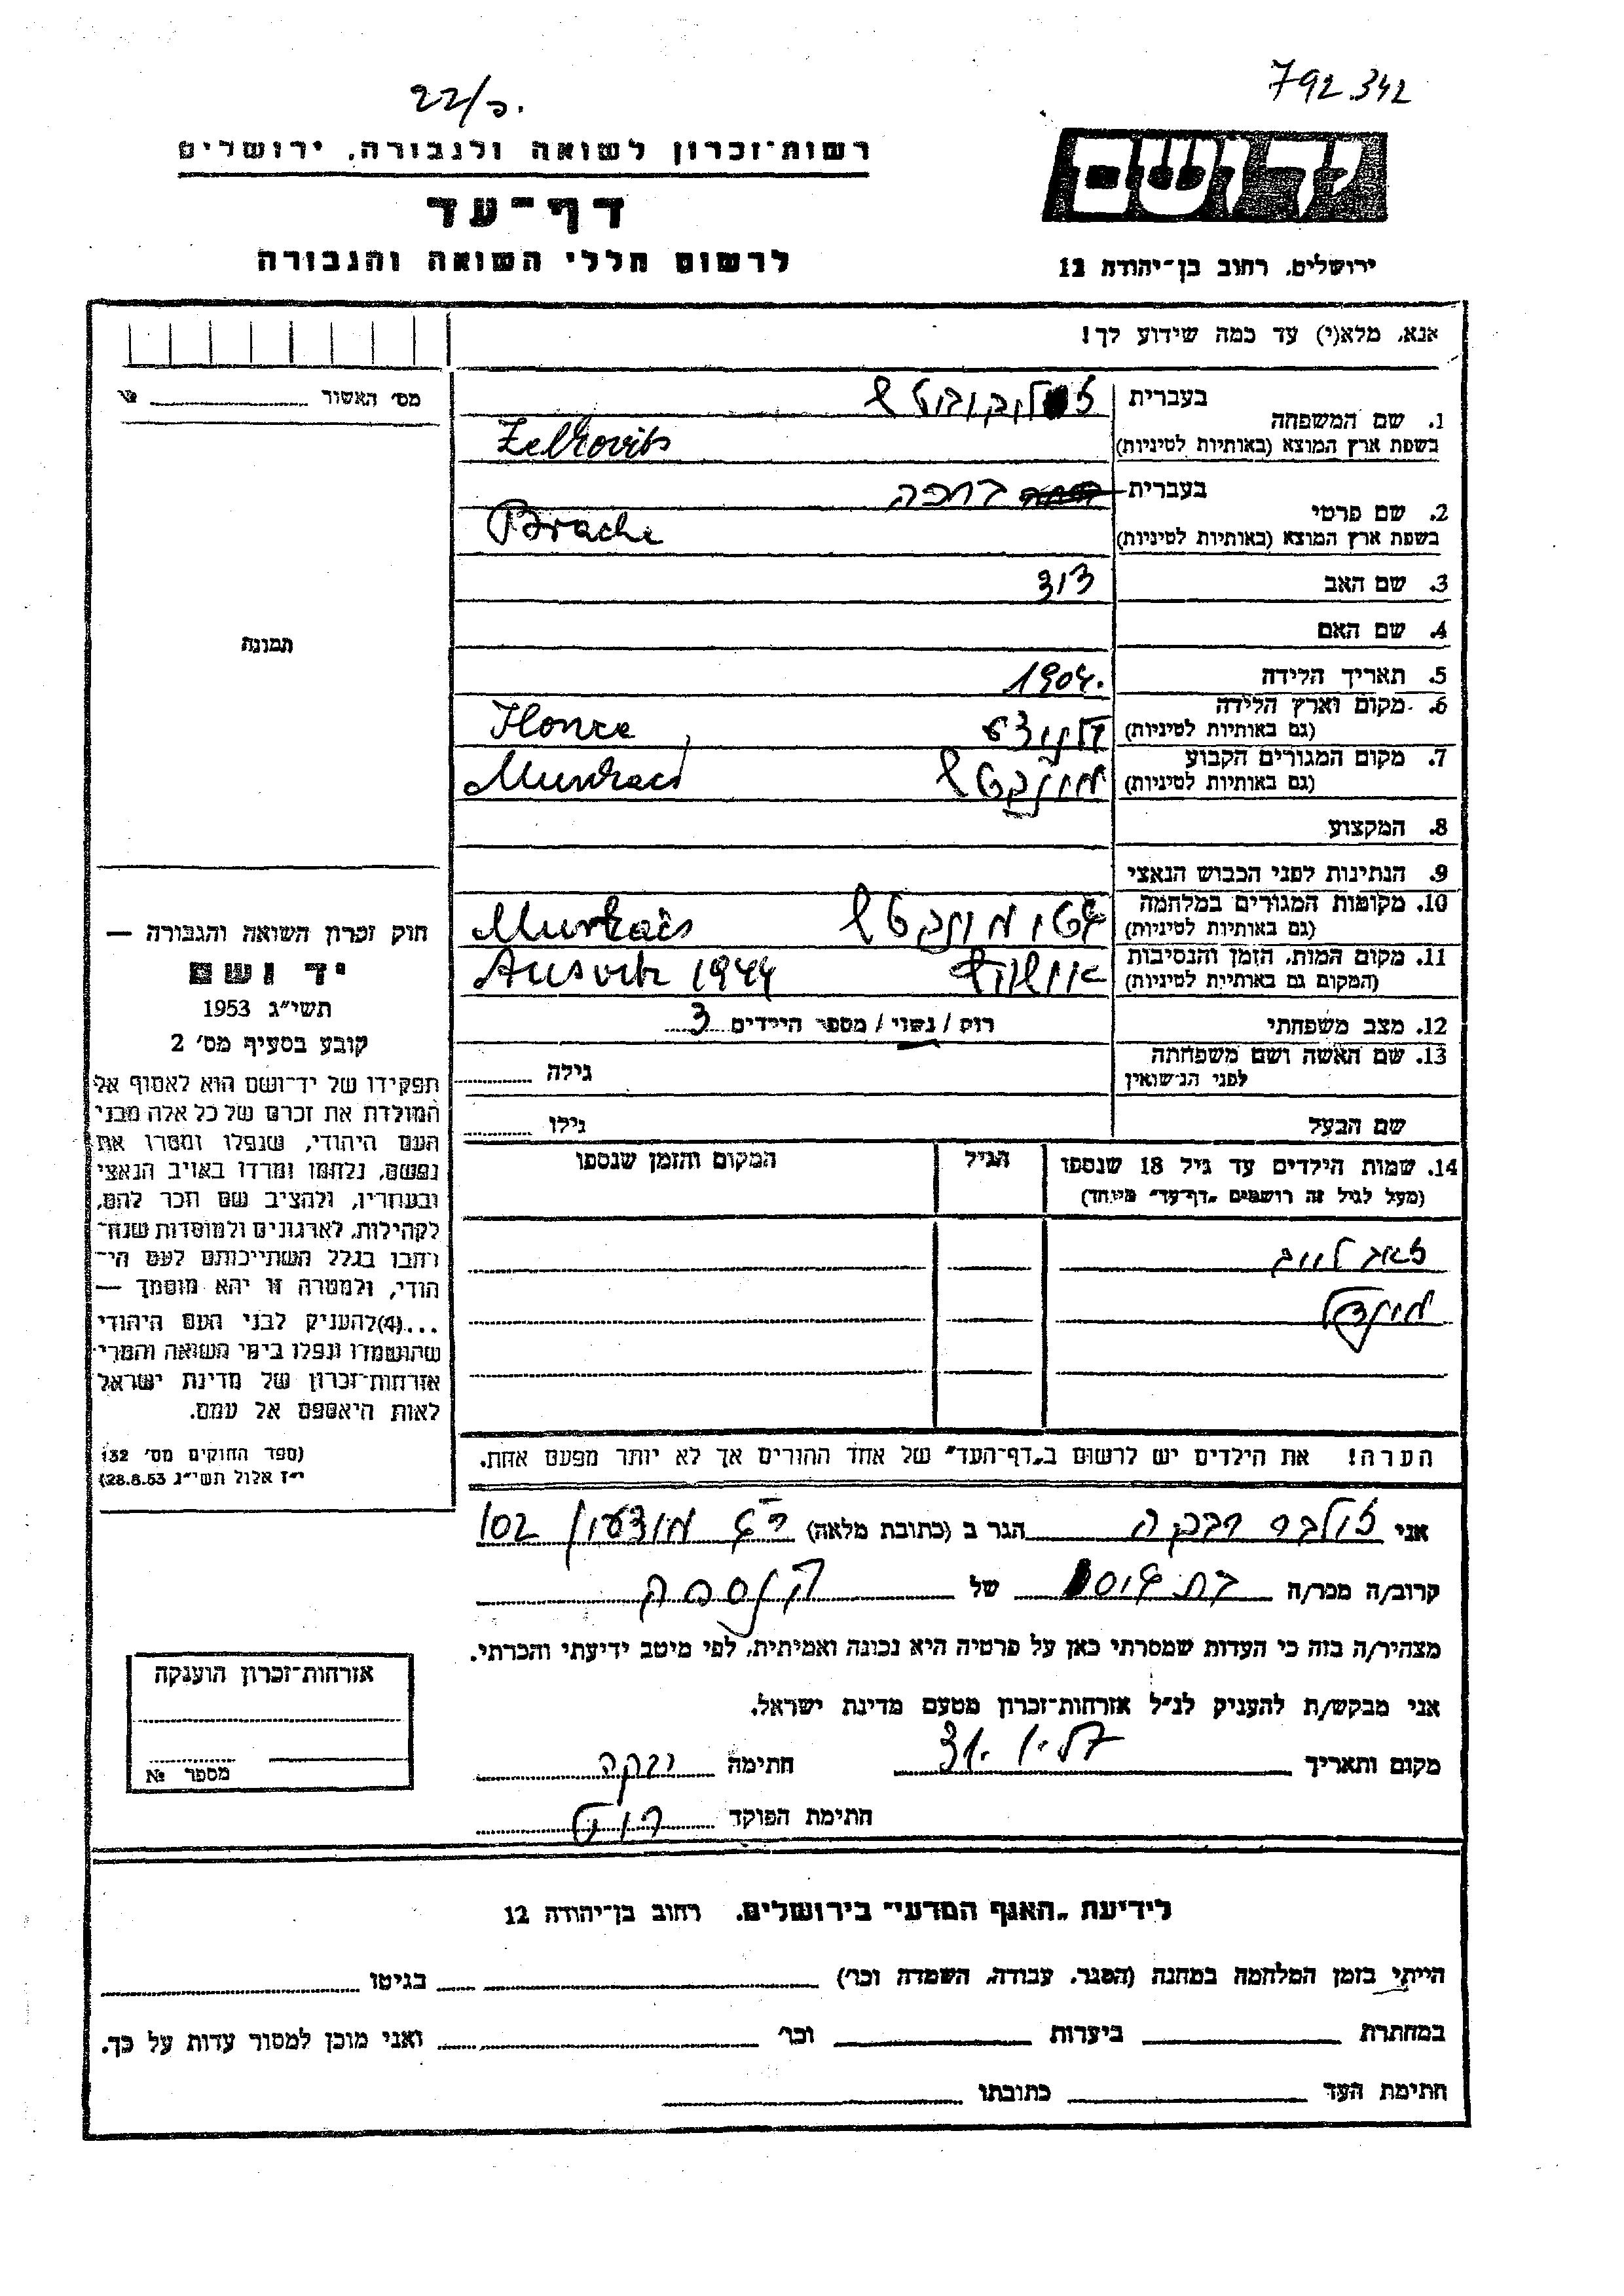 792342
22/ס.
יד ושם
ירושלים, רחוב בן־יהודה 12
רשות־זכרון לשואה ולגבורה, ירושלים
דף־עד
לרשום חללי השואה והגבורה
אנא, מלא(י) עד כמה שידוע לך!
מס' האשור №
תמונה
חוק זכרון השואה והגבורה —
יד ושם
תשי״ג 1953
קובע בסעיף מס' 2
תפקידו של יד־ושם הוא לאסוף אל
המולדת את זכרם של כל אלה מבני
העם היהודי, שנפלו ומסרו את
נפשם, נלחמו ומרדו באויב הנאצי
ובעוזריו, ולהציב שם וזכר להם,
לקהילות, לארגונים ולמוסדות שנח־
רחבו בגלל השתייכותם לעם הי־
הודי, ולמטרה זו יהא מוסמך —
...(4)להעניק לבני העם היהודי
שהושמדו ונפלו בימי השואה והמרי
אזרחות־זכרון של מדינת ישראל
לאות היאספם אל עמם.
(ספר החוקים מס' 132
י״ז אלול תשי״ג 28.8.53)
1. שם המשפחה
בעברית זלקוביטש
בשפת ארץ המוצא (באותיות לטיניות) Zelkovits
2. שם פרטי
בעברית ברכה
בשפת ארץ המוצא (באותיות לטיניות) Brache
3. שם האב דוד
4. שם האם
5. תאריך הלידה 1904.
6. מקום וארץ הלידה
(גם באותיות לטיניות) Ilonce
7. מקום המגורים הקבוע
(גם באותיות לטיניות) מונקטש Munkacs
8. המקצוע
9. הנתינות לפני הכבוש הנאצי
10. מקומות המגורים במלחמה
(גם באותיות לטיניות) גטו מונקטש Munkacs
11. מקום המות, הזמן והנסיבות
(המקום גם באותיות לטיניות) אושוויץ Ausvitz 1944
12. מצב משפחתי רוק / נשוי / מספר הילדים 3
13. שם האשה ושם משפחתה
לפני הנשואין גילה
שם הבעל גילו
14. שמות הילדים עד גיל 18 שנספו
(מעל לגיל זה רושמים „דף־עד״ מיוחד)
הגיל
המקום והזמן שנספו
זאב לייב
מונדל
הערה! את הילדים יש לרשום ב„דף־העד״ של אחד ההורים אך לא יותר מפעם אחת.
אני זילבר רבקה הגר ב (כתובת מלאה) מודעון 102
קרוב/ה מכר/ה בת של הנספה
מצהיר/ה בזה כי העדות שמסרתי כאן על פרטיה היא נכונה ואמיתית, לפי מיטב ידיעתי והכרתי.
אני מבקש/ת להעניק לנ״ל אזרחות־זכרון מטעם מדינת ישראל.
מקום ותאריך חתימה רבקה
חתימת הפוקד
אזרחות־זכרון הוענקה
מספר №
לידיעת „האגף המדעי״ בירושלים, רחוב בן־יהודה 12
הייתי בזמן המלחמה במחנה (הסגר, עבודה, השמדה וכו') בגיטו
במחתרת ביערות וכו' ואני מוכן למסור עדות על כך.
חתימת העד כתובתו